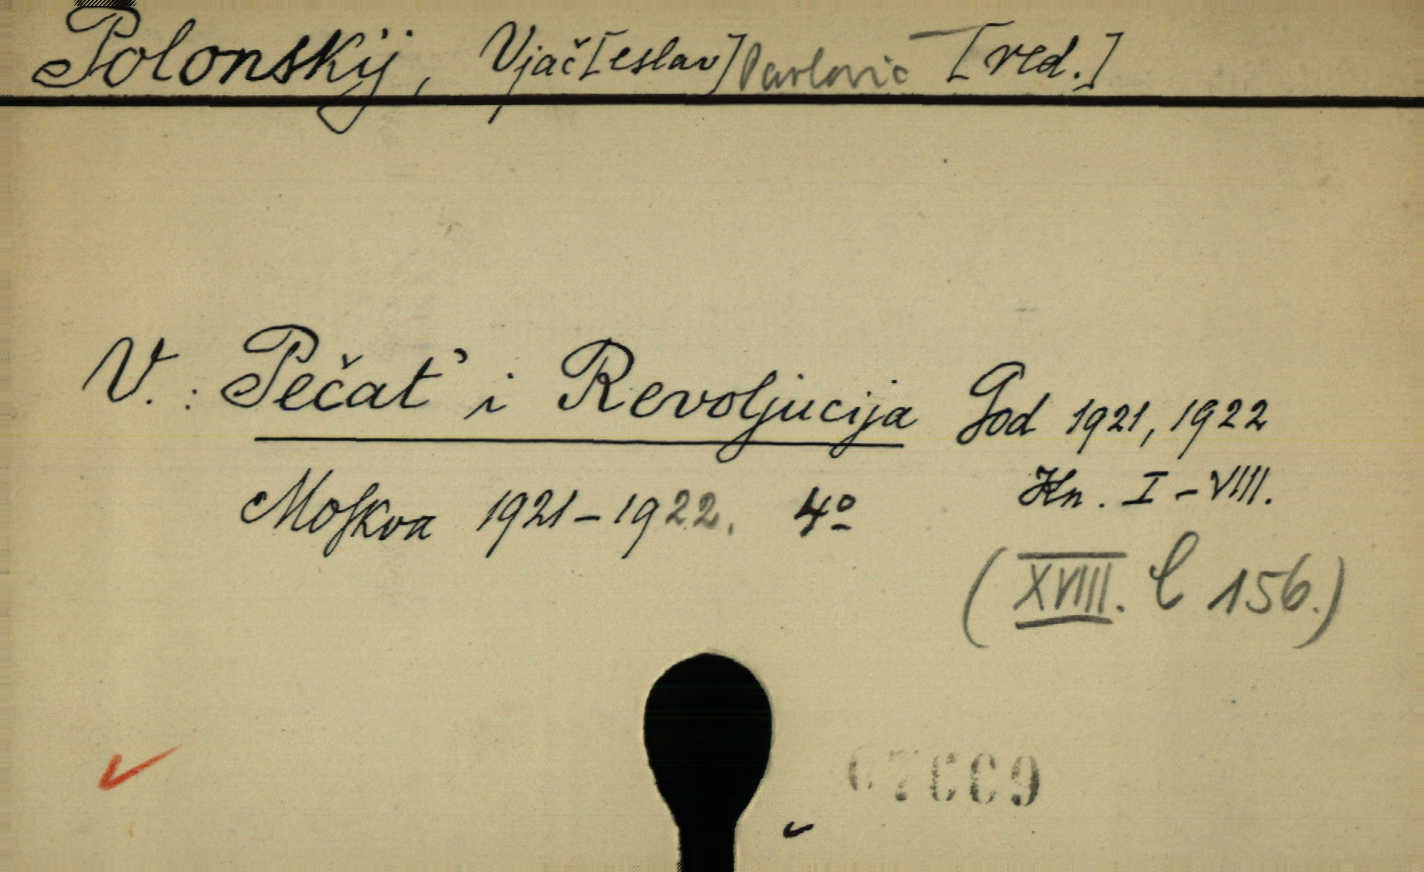 Polonskij, Vjač[eslav] Pavlovic — [red.]
V.: Pečat' i Revoljucija God 1921, 1922
Kn. I-VIII.
Moskva 1921-1922. 4º
(XVIII. C 156.)